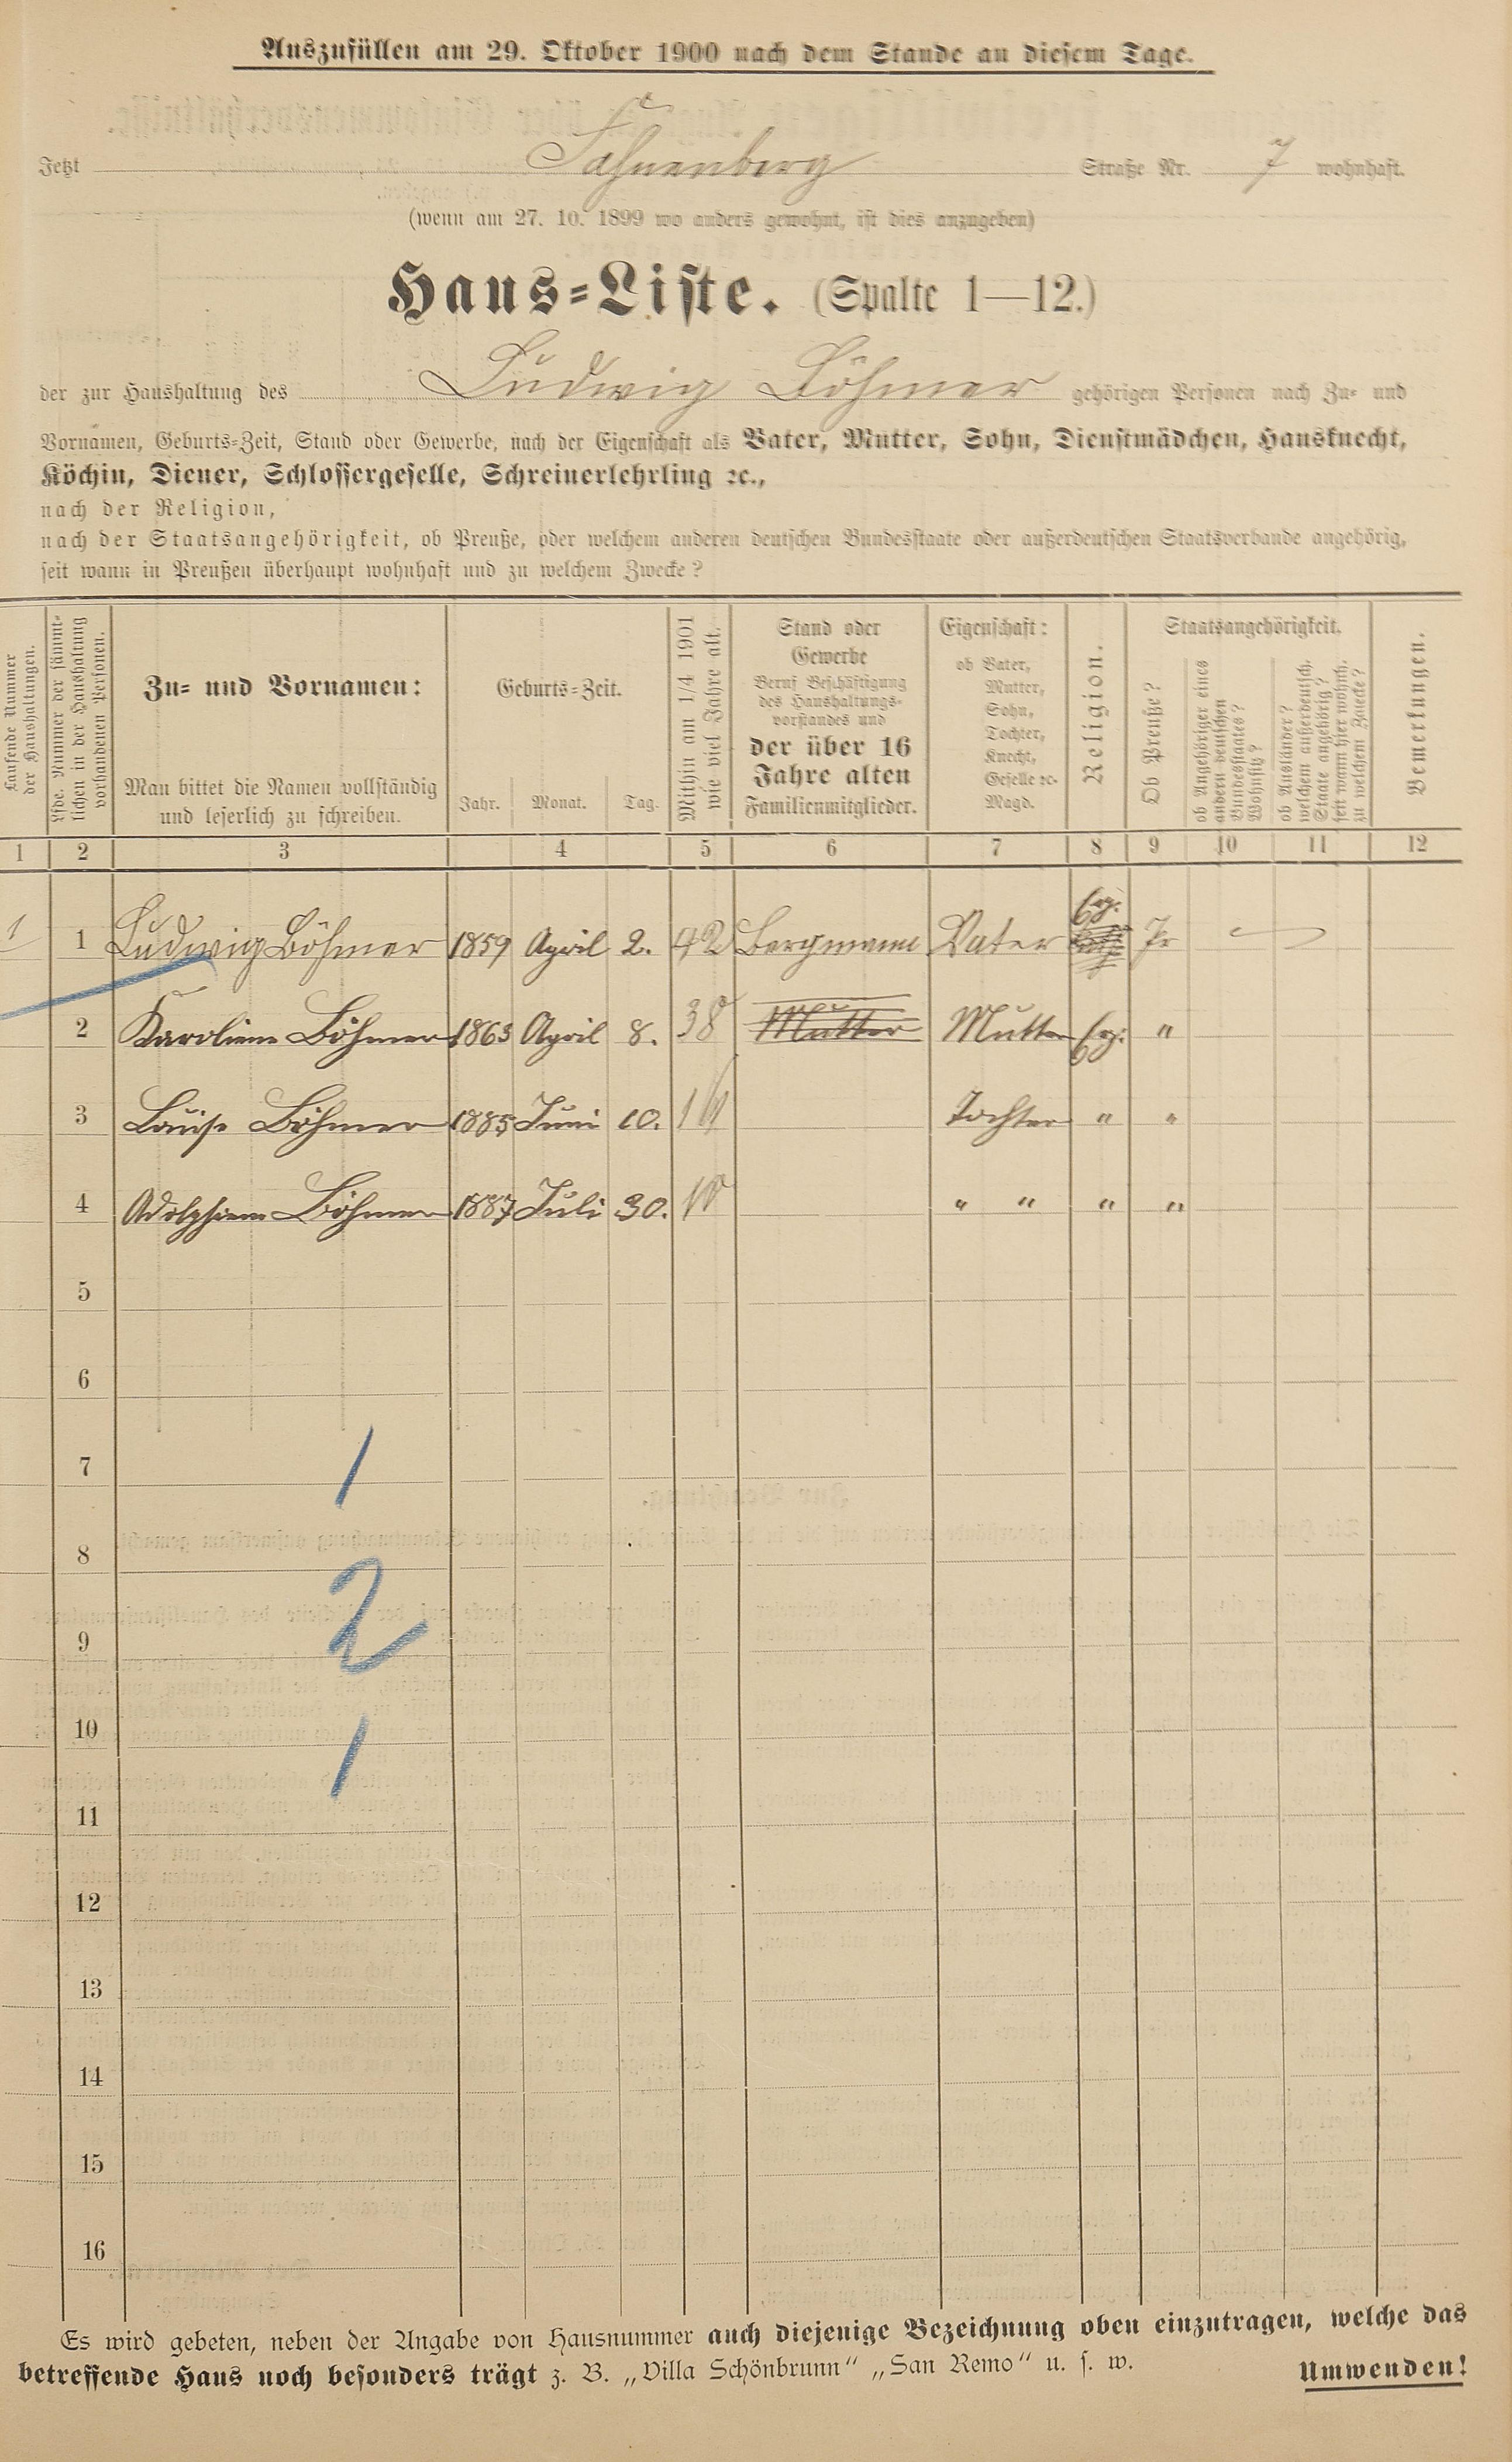 Auszufüllen am 29. Oktober 1900 nach dem Stande an diesem Tage.
Jetzt Fahnenberg Straße Nr. 7 wohnhaft.
(wenn am 27. 10. 1899 wo anders gewohnt, ist dies anzugeben)
Haus-Liste. (Spalte 1—12.)
der zur Haushaltung des Ludwig Böhmer gehörigen Personen nach Zu- und
Vornamen, Geburts-Zeit, Stand oder Gewerbe, nach der Eigenschaft als Vater, Mutter, Sohn, Dienstmädchen, Hausknecht,
Köchin, Diener, Schlossergeselle, Schreinerlehrling ꝛc.,
nach der Religion,
nach der Staatsangehörigkeit, ob Preuße, oder welchem anderen deutschen Bundesstaate oder außerdeutschen Staatsverbande angehörig,
seit wann in Preußen überhaupt wohnhaft und zu welchem Zwecke?
Laufende Nummer
der Haushaltungen.
Lfde. Nummer der sämmt-
lichen in der Haushaltung
vorhandenen Personen.
Zu- und Vornamen:
Man bittet die Namen vollständig
und leserlich zu schreiben.
Geburts-Zeit.
Jahr. Monat. Tag.
Mithin am 1/4 1901
wie viel Jahre alt.
Stand oder
Gewerbe
Beruf Beschäftigung
des Haushaltungs-
vorstandes und
der über 16
Jahre alten
Familienmitglieder.
Eigenschaft:
ob Vater,
Mutter,
Sohn,
Tochter,
Knecht,
Geselle ꝛc.
Magd.
Religion.
Staatsangehörigkeit.
Ob Preuße?
ob Angehöriger eines
andern deutschen
Bundesstaates?
Wohnsitz?
ob Ausländer?
welchem außerdeutsch.
Staate angehörig?
seit wann hier wohnh.
zu welchem Zwecke?
Bemerkungen.
1 2 3 4 5 6 7 8 9 10 11 12
1 1 Ludwig Böhmer 1859 April 2. 42 Bergmann Vater Evg. Pr
2 Karoline Böhmer 1863 April 8. 38 Mutter Mutter Evg. "
3 Louise Böhmer 1885 Juni 10. Tochter " "
4 Böhmer 1887 Juli 30. " " " "
5
6
7
1
8
2
9
10
1
11
12
13
14
15
16
Es wird gebeten, neben der Angabe von Hausnummer auch diejenige Bezeichnung oben einzutragen, welche das
betreffende Haus noch besonders trägt z. B. „Villa Schönbrunn“ „San Remo“ u. s. w.
Umwenden!